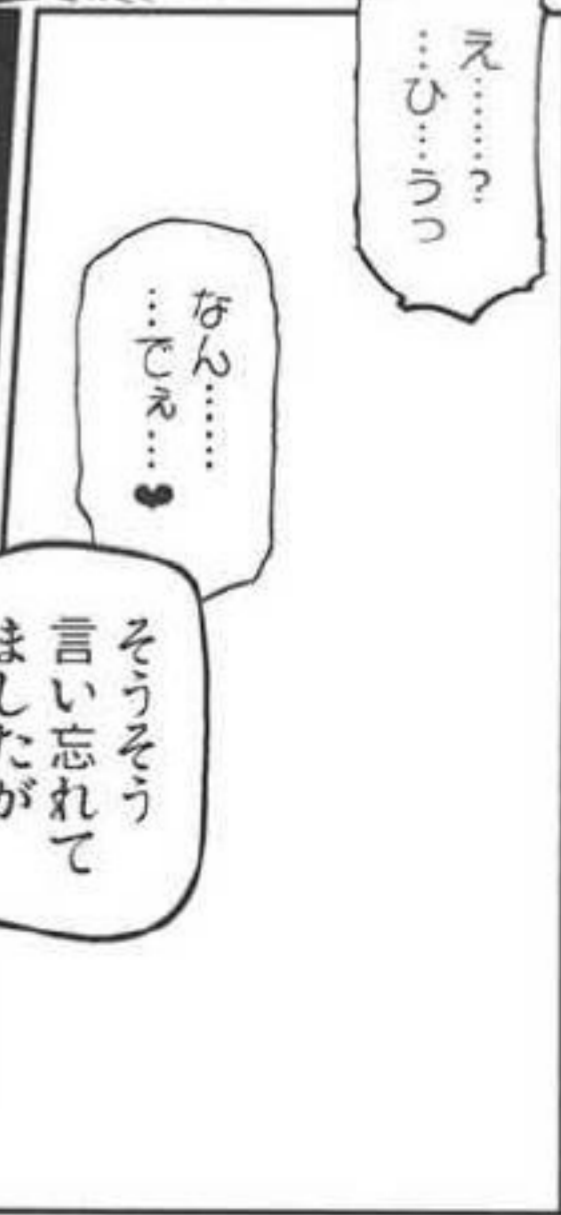 え……？
…ひ…うっ
なん………
…でぇ……♥
そうそう
言い忘れて
ましたが